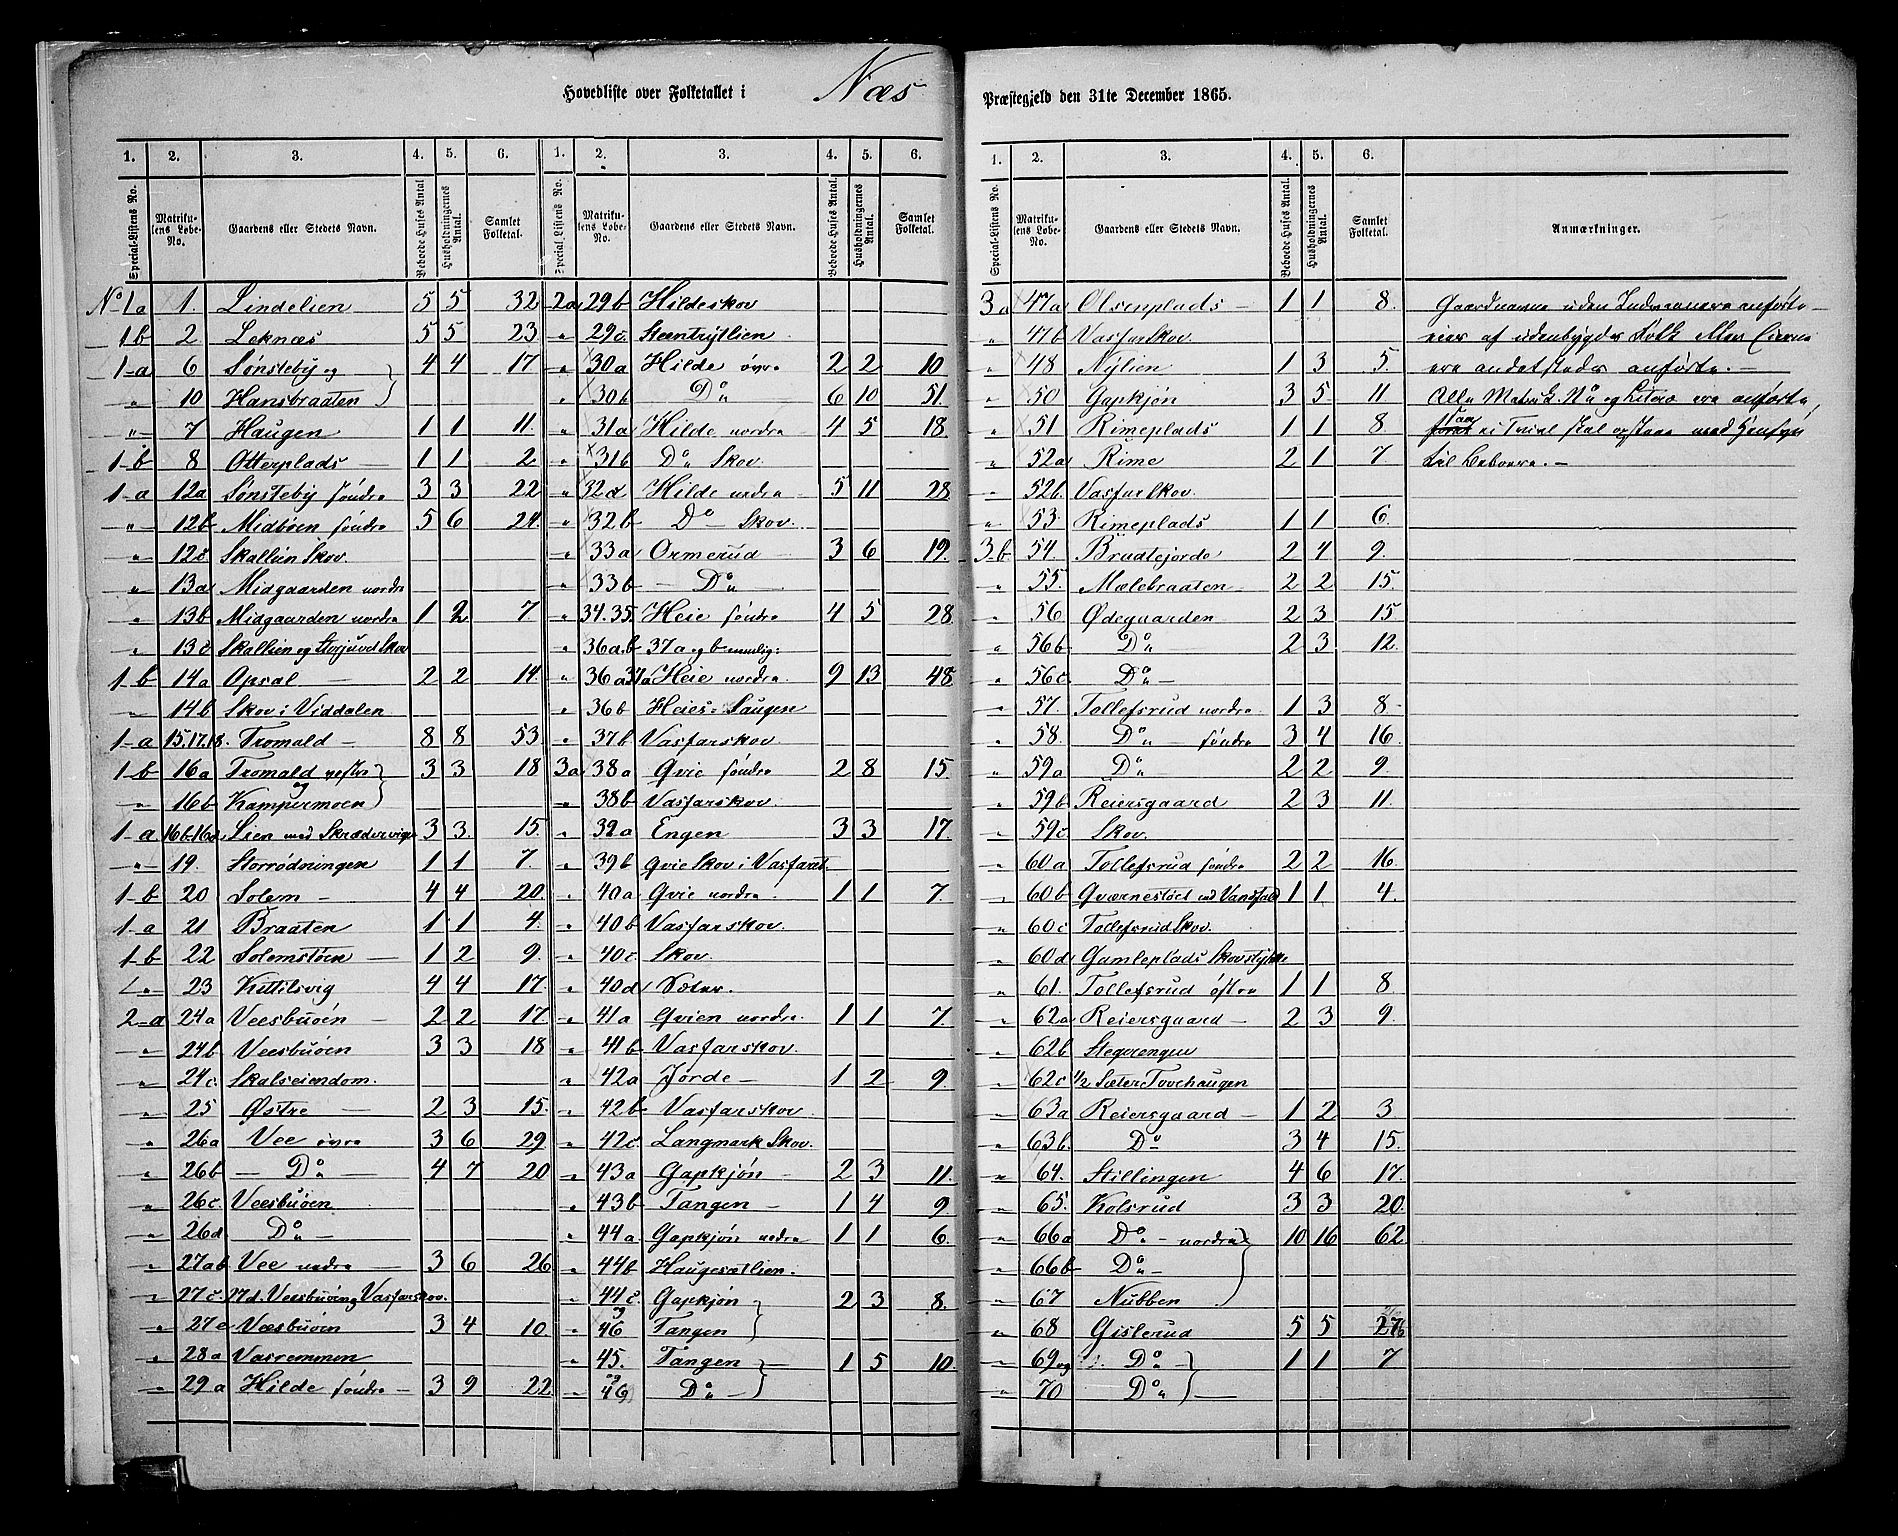 Hovedliste over Folketallet i Næs Præstegjeld den 31te December 1865.
1. 2. 3. 4. 5. 6. 1. 2. 3. 4. 5. 6.
Special-Listens No. Matrikulens Løbe-No. Gaardens eller Stedets Navn. Beboede Huses Antal. Husholdningernes Antal. Samlet Folketal. Special-Listens No. Matrikulens Løbe-No. Gaardens eller Stedets Navn. Beboede Huses Antal. Husholdningernes Antal. Samlet Folketal.
No 1a 1. Lindelien 5 5 32
1b 2 Leknæs 5 5 23
1-a 6 Sønsteby og 4 4 17
" 10 Hansbraaten
" 7 Haugen 1 1 11.
1-b 8 Otterplads 1 1 2
1-a 12a Sønsteby søndre 3 3 22
" 12b Midbøen søndre 5 6 24.
" 12c Skallien Skov
" 13a Midgaarden nordre
" 13b Midgaarden nordre 1 2 7
" 13c Skallien og Storjuvd Skov
1 b 14a Opsal 2 2 14
" 14b Skov i Viddalen
1-a 15.17.18. Tromald 8 8 53
1 b 16a Tromald vestre og 3 3 18
" 16b Kampermoen
1-a 16b.16a Lien med Skrædervigen 3 3. 15.
" 19. Storrødningen 1 1 7.
1-b 20 Solem 4 4 20.
1-a 21 Braaten 1 1 4.
1-b 22 Solemstøen 1 2 9.
" 23 Kittilsvig 4 4 17.
2-a 24a Veesbuøen 2 2 17
" 24b Veesbuøen 3 3 18
" 24c. Skalseiendom.
" 25 Østre 2 3 15.
" 26a Vee øvre 3 6 29
" 26b Do 4 7 20
" 26c. Veesbuøen
" 26d Do
" 27ab Vee nedre 3 6 26
" 27c. 27d. Veesbuøen og Vasfarskov.
" 27e Væsbuøen 3 4 10
" 28a Vasremmen
" 29a Hilde søndre 3 9 22
2a 29b Hildeskov
" 29c. Steentrytlien
" 30a Hilde øvre 2 2 10
" 30b Do 6 10 51.
" 31a Hilde nordre 4 5 18.
" 31b Do Skov.
" 32d Hilde nedre 5 11 28
" 32b Do Skov.
" 33a Ormerud 3 6 19.
" 33b Do
" 34.35. Heie søndre 4 5 28.
" 36a.b 37a og b nemlig:
" 36a 37a Heie nordre. 9 13 48.
" 36b Heies-Haugen
" 37b Vasfarskov.
3a 38a Qvie søndre 2 8 15.
" 38b Vasfarskov.
" 39a Engen 3 3 17.
" 39b Qvie Skov i Vasfaret.
" 40a Qvie nordre 1 1 7.
" 40b Vasfarskov.
" 40c Skov.
" 40d Sæter.
" 41a Qvien nordre. 1 1 7.
" 41b Vasfarskov.
" 42a Jorde 1 2 9.
" 42b Vasfarskov
" 42c. Langmark Skov.
" 43a Gapkjøn 2 3 11.
" 43b Tangen 1 4 9.
" 44a Gapkjøn nedre 1 1 6.
" 44b Haugesætlien.
" 44c og Gapkjøn 2 3 8.
" 46 Tangen
" 45. og Tangen 1 5 10.
" 46 Do
1. 2. 3. 4. 5. 6.
Special-Listens No. Matrikulens Løbe-No. Gaardens eller Stedets Navn. Beboede Huses Antal. Husholdningernes Antal. Samlet Folketal. Anmærkninger.
3a 47a Olsenplads 1 1 8.
" 47b Vasfarskov
" 48 Nylien 1 3 5.
" 50 Gapkjøn 3 5 11
" 51 Rimeplads 1 1 8
" 52a Rime 2 1 7.
" 52b. Vasfarskov.
" 53. Rimeplads 1 1 6.
3-b 54. Brudtejorde 2 4 9.
" 55. Mælebraaten 2 2 15.
" 56 Ødegaarden 2 3 15
" 56b Do 2 3 12.
" 56c Do
" 57. Tollefsrud nordre. 1 3 8
" 58. Do søndre 3 4 16.
" 59a Do 2 2 9.
" 59b Reiersgaard 2 3 11.
" 59c. Skov.
" 60a Tollefsrud søndre 2 2 16.
" 60b Qværnestøet med Vandfald 1 1 4.
" 60c Tollefsrud Skov.
" 60d Gamleplads Skovstykke
" 61. Tollefsrud østre 1 1 8
" 62a Reiersgaard 2 3 9.
" 62b Stegerengen
" 62c 1/2 Sæter Tovehaugen
" 63a Reiersgaard 1 2 3
" 63b. Do 3 4 15.
" 64. Stillingen 4 6 17.
" 65. Kolsrud 3 3 20.
" 66a Do nordre 10 16 62
" 66b Do
" 67 Nubben
" 68 Gislerud 5 5 27
" 69 og Do 1 1 7
" 70 Do
Gaardnavne uden
eier af udenbygds Folk eller
ere andetsteds anførte.
Alle Matrk. No og Litera ere anførte,
til Beboere.